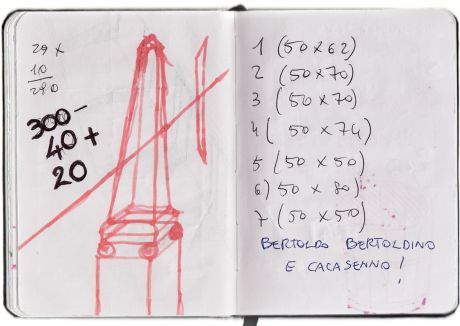 29 x
10
290
300 -
40 +
20
1 (50 x 62)
2 (50 x 70)
3 (50 x 70)
4 ( 50 x 74)
5 (50 x 50)
6) 50 x 80)
7 (50 x 50)
BERTOLDO BERTOLDINO
E CACASENNO!